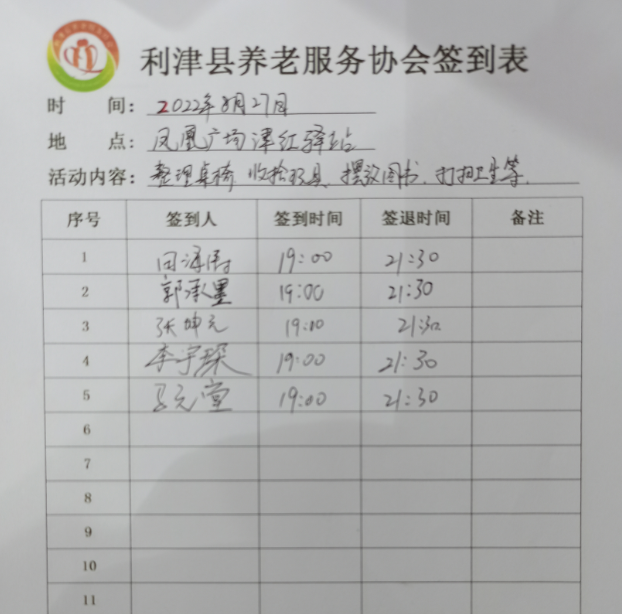 利津县养老服务协会签到表
时 间: 2022年8月27日
地 点: 凤凰广场津红驿站
活动内容: 整理桌椅 收拾玩具、摆放图书、打扫卫生等.
序号 签到人 签到时间 签退时间 备注
1 19:00 21:30
2 郭承墨 19:00 21:30
3 张坤元 19:10 21:30
4 李宇琛 19:00 21:30
5 马元堂 19:00 21:30
6
7
8
9
10
11